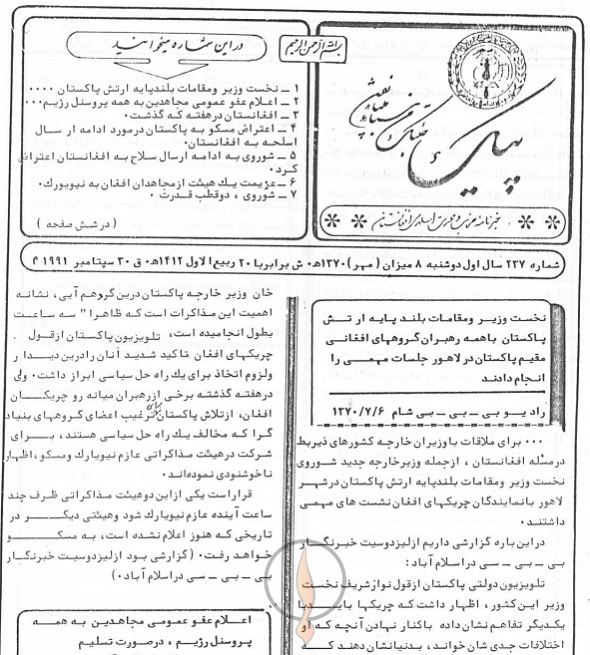 بسم الله الرحمن الرحیم
در این شماره میخوانید
۱ ــ نخست وزیر ومقامات بلندپایه ارتش پاکستان ۰۰۰۰
۲ ــ اعلام عفو عمومی مجاهدین به همه پرسنل رژیم۰۰۰
۳ ــ افغانستان درهفته که گذشت۰
۴ ــ اعتراض مسکو به پاکستان درمورد ادامه ار سال
اسلحه به افغانستان۰
۵ ــ شوروی به ادامه ارسال سلاح به افغانستان اعتراض
کرد۰
۶ ــ عزیمت یك هیئت ازمجاهدان افغان به نیویورك۰
۷ ــ شوروی ، دوقطب قدرت ۰
( در شش صفحه )
پیک
خبرنامه حزب وحدت اسلامی افغانستان
شماره ۲۳۷ سال اول دوشنبه ۸ میزان ( مهر ) ۱۳۷۰ه۰ ش برابربا ۲۰ ربیع الاول ۱۴۱۲ه۰ ق ۳۰ سپتامبر ۱۹۹۱ م
نخست وزیر ومقامات بلند پایه ار تش
پاکستان باهمه رهبران گروههای افغانی
مقیم پاکستان در لاهور جلسات مهمی را
انجام دادند
رادیو بی ــ بی ــ سی شام ۱۳۷۰/۷/۶
۰۰۰ برای ملاقات باوزیران خارجه کشورهای ذیربط
درمسئله افغانستان ، ازجمله وزیرخارجه جدید شوروی
نخست وزیر ومقامات بلندپایه ارتش پاکستان درشهر
لاهور بانمایندگان چریکهای افغان نشست های مهمی
داشتند۰
دراین باره گزارشی داریم ازلیزدوسیت خبرنگار
بی ــ بی ــ سی در اسلام آباد :
تلویزیون دولتی پاکستان ازقول نواز شریف نخست
وزیر این کشور ، اظهار داشت که چریکها بایدبا
یکدیگر تفاهم نشان داده باکنار نهادن آنچه که او
اختلافات جدی شان خواند ، بدنیانشان دهند که
خان وزیر خارجه پاکستان درین گروهم آیی ، نشانه
اهمیت این مذاکرات است که ظاهرا" سه ساعت
بطول انجامیده است، تلویزیون پاکستان ازقول
چریکهای افغان تاکید شدید آنان رادرین دیدا ر
ولزوم اتخاذ برای یك راه حل سیاسی ابراز داشت۰ ولی
درهفته گذشته برخی ازرهبران میانه رو چریکان
افغان، ازتلاش پاکستان برای ترغیب اعضای گروههای بنیاد
گرا که مخالف یك راه حل سیاسی هستند ، برای
شرکت درهیئت مذاکراتی عازم نیویارك ومسکو ،اظهار
ناخوشنودی نموده‌اند۰
قراراست یکی ازاین دوهیئت مذاکراتی ظرف چند
ساعت آینده عازم نیویارك شود وهیئتی دیگر در
تاریخی که هنوز اعلام نشده است، به مسکو
خواهد رفت۰ ( گزارشی بود ازلیزدوسیت خبرنگار
بی ــ بی ــ سی دراسلام آباد۰)
اعلام عفو عمومی مجاهدین به همه
پرسونل رژیم ، درصورت تسلیم